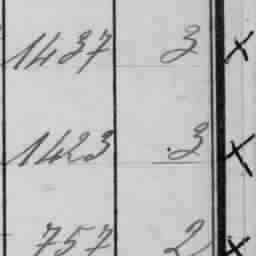 1437 3 x
1423 .3 x
757 2 x